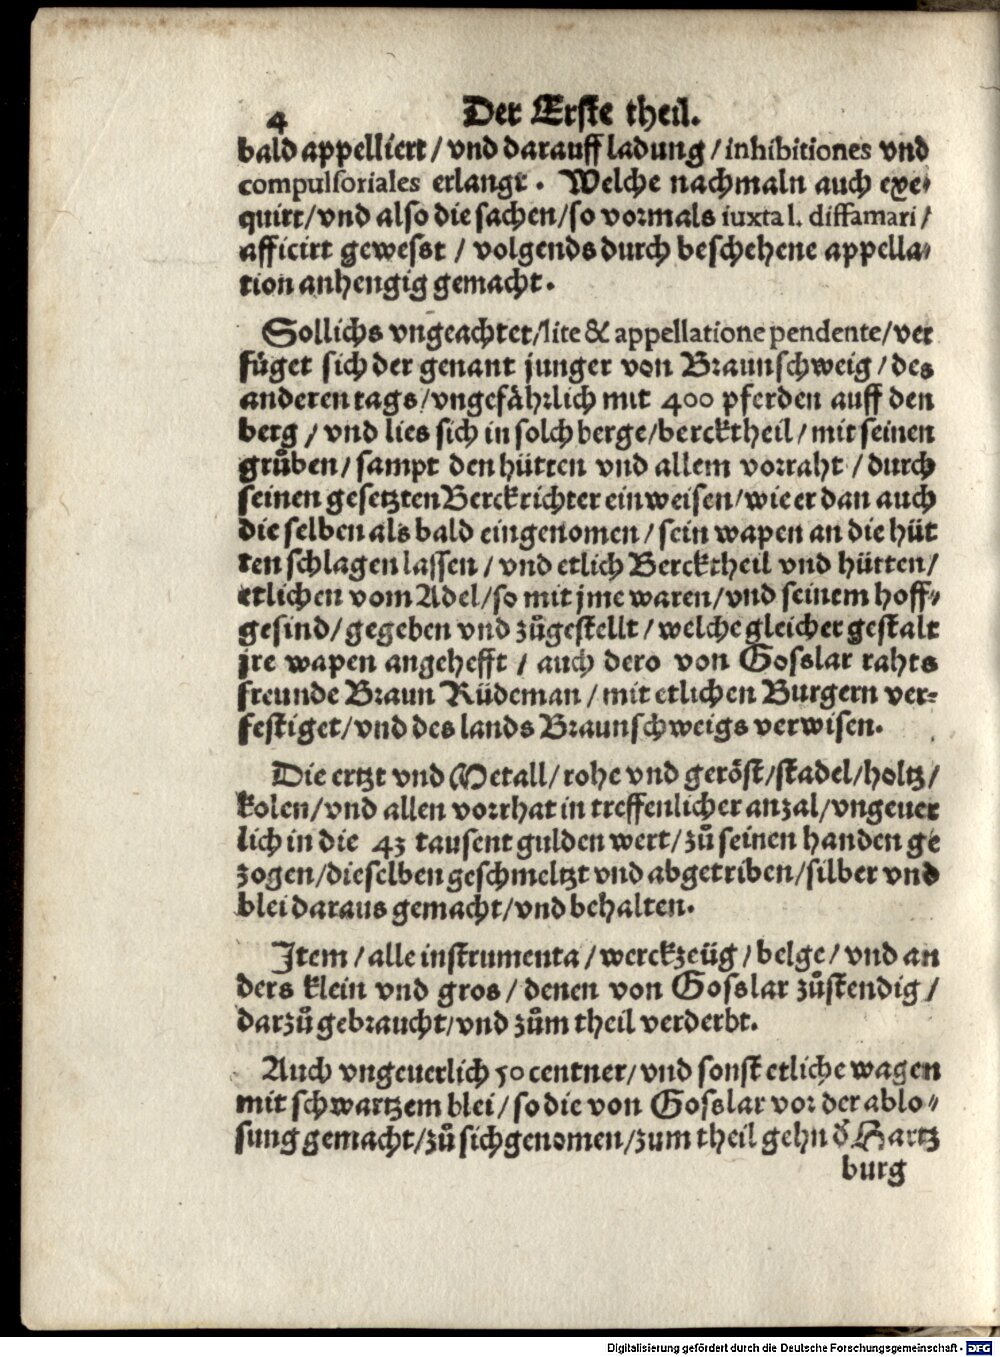 4 Der Erste theil.
bald appelliert / vnd darauff ladung / inhibitiones vnd
compulsoriales erlangt. Welche nachmaln auch exe-
quirt/vnd also die sachen/so vormals iuxta l. diffamari /
afficirt gewesst / volgends durch beschehene appella-
tion anhengig gemacht.
Sollichs vngeachtet/lite & appellatione pendente/ver
füget sich der genant junger von Braunschweig / des
anderen tags/vngefährlich mit 400 pferden auff den
berg / vnd lies sich in solch berge/bercktheil / mit seinen
grůben/ sampt den hütten vnd allem vorraht / durch
seinen gesetzten Berckrichter einweisen/wie er dan auch
die selben als bald eingenomen / sein wapen an die hüt
ten schlagen lassen / vnd etlich Bercktheil vnd hütten/
etlichen vom Adel/so mit jme waren/vnd seinem hoff-
gesind/gegeben vnd zůgestellt / welche gleicher gestalt
jre wapen angehefft / auch dero von Gosslar rahts
freunde Braun Rüdeman / mit etlichen Burgern ver-
festiget/vnd des lands Braunschweigs verwisen.
Die ertzt vnd Metall/rohe vnd geröst/stadel/holtz/
kolen/vnd allen vorrhat in treffenlicher anzal/vngeuer
lich in die 43 tausent gulden wert/zů seinen handen ge
zogen/dieselben geschmeltzt vnd abgetriben/silber vnd
blei daraus gemacht/vnd behalten.
Item / alle instrumenta / werckzeüg / belge / vnd an
ders klein vnd gros / denen von Gosslar zůstendig /
darzů gebraucht/vnd zům theil verderbt.
Auch vngeuerlich 50 centner/vnd sonst etliche wagen
mit schwartzem blei / so die von Gosslar vor der ablo-
sung gemacht/zů sich genomen/zum theil gehn d̕ Hartz
burg
Digitalisierung gefördert durch die Deutsche Forschungsgemeinschaft - DFG